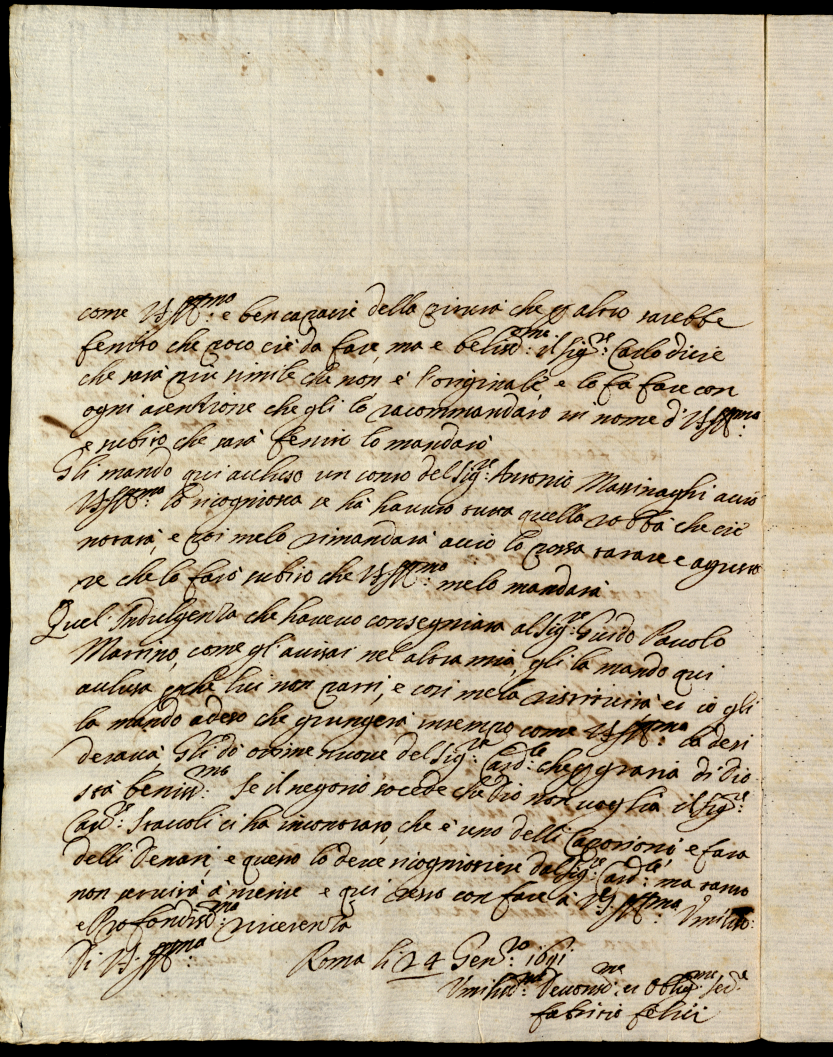 come VS Ill:mo e ben capace della pittura che p altro sarebbe
fenito che poco cie da fare, ma e beliss:mo il Sig:re Carlo dicie
che sara piu simile che non e l'originale e lo fa fare con
ogni atentione che gli lo racommandato in nome di VS Ill:ma
e subito che sara fenito lo mandarò
Gli mando qui acluso un conto del Sig:re Antonio Massinaghi acciò
VS Ill:ma lo ricogniosca se ha havuto tutta quella robba che cie
notata, e poi melo rimandara acciò lo possa tarare e agiusta
re che lo farò subito che VS Ill:ma melo mandara
Quel Indulgenza che havevo consegniata al Sig:re Guido Pavolo
Martino, come gl'avisai nel altra mia, gli la mando qui
aclusa perche lui non parti, e cosi me la ristituita et io gli
la mando adeso che giungera in tempo come VS Ill:ma la desi
derava Gli do ottime nuove del Sig:re Card:le che p gratia di Dio
sta beniss:mo Se il negotio socede che Dio non voglia il Sig:re
Cav:re Staccoli ci ha incontrato, che è uno delli Caporioni e fara
delli Denari, e questo lo deve ricogniosciere dal Sig:re Card:le ma tanto
non servira a niente e qui resto con fare a VS Ill:ma Umiliss:
e Profondiss:ma riverenza
Di VS Ill:ma Roma li 24 Gen:ro 1691
Umiliss:mo Devotiss:mo et Oblig:mo Ser:e
fabritio felici